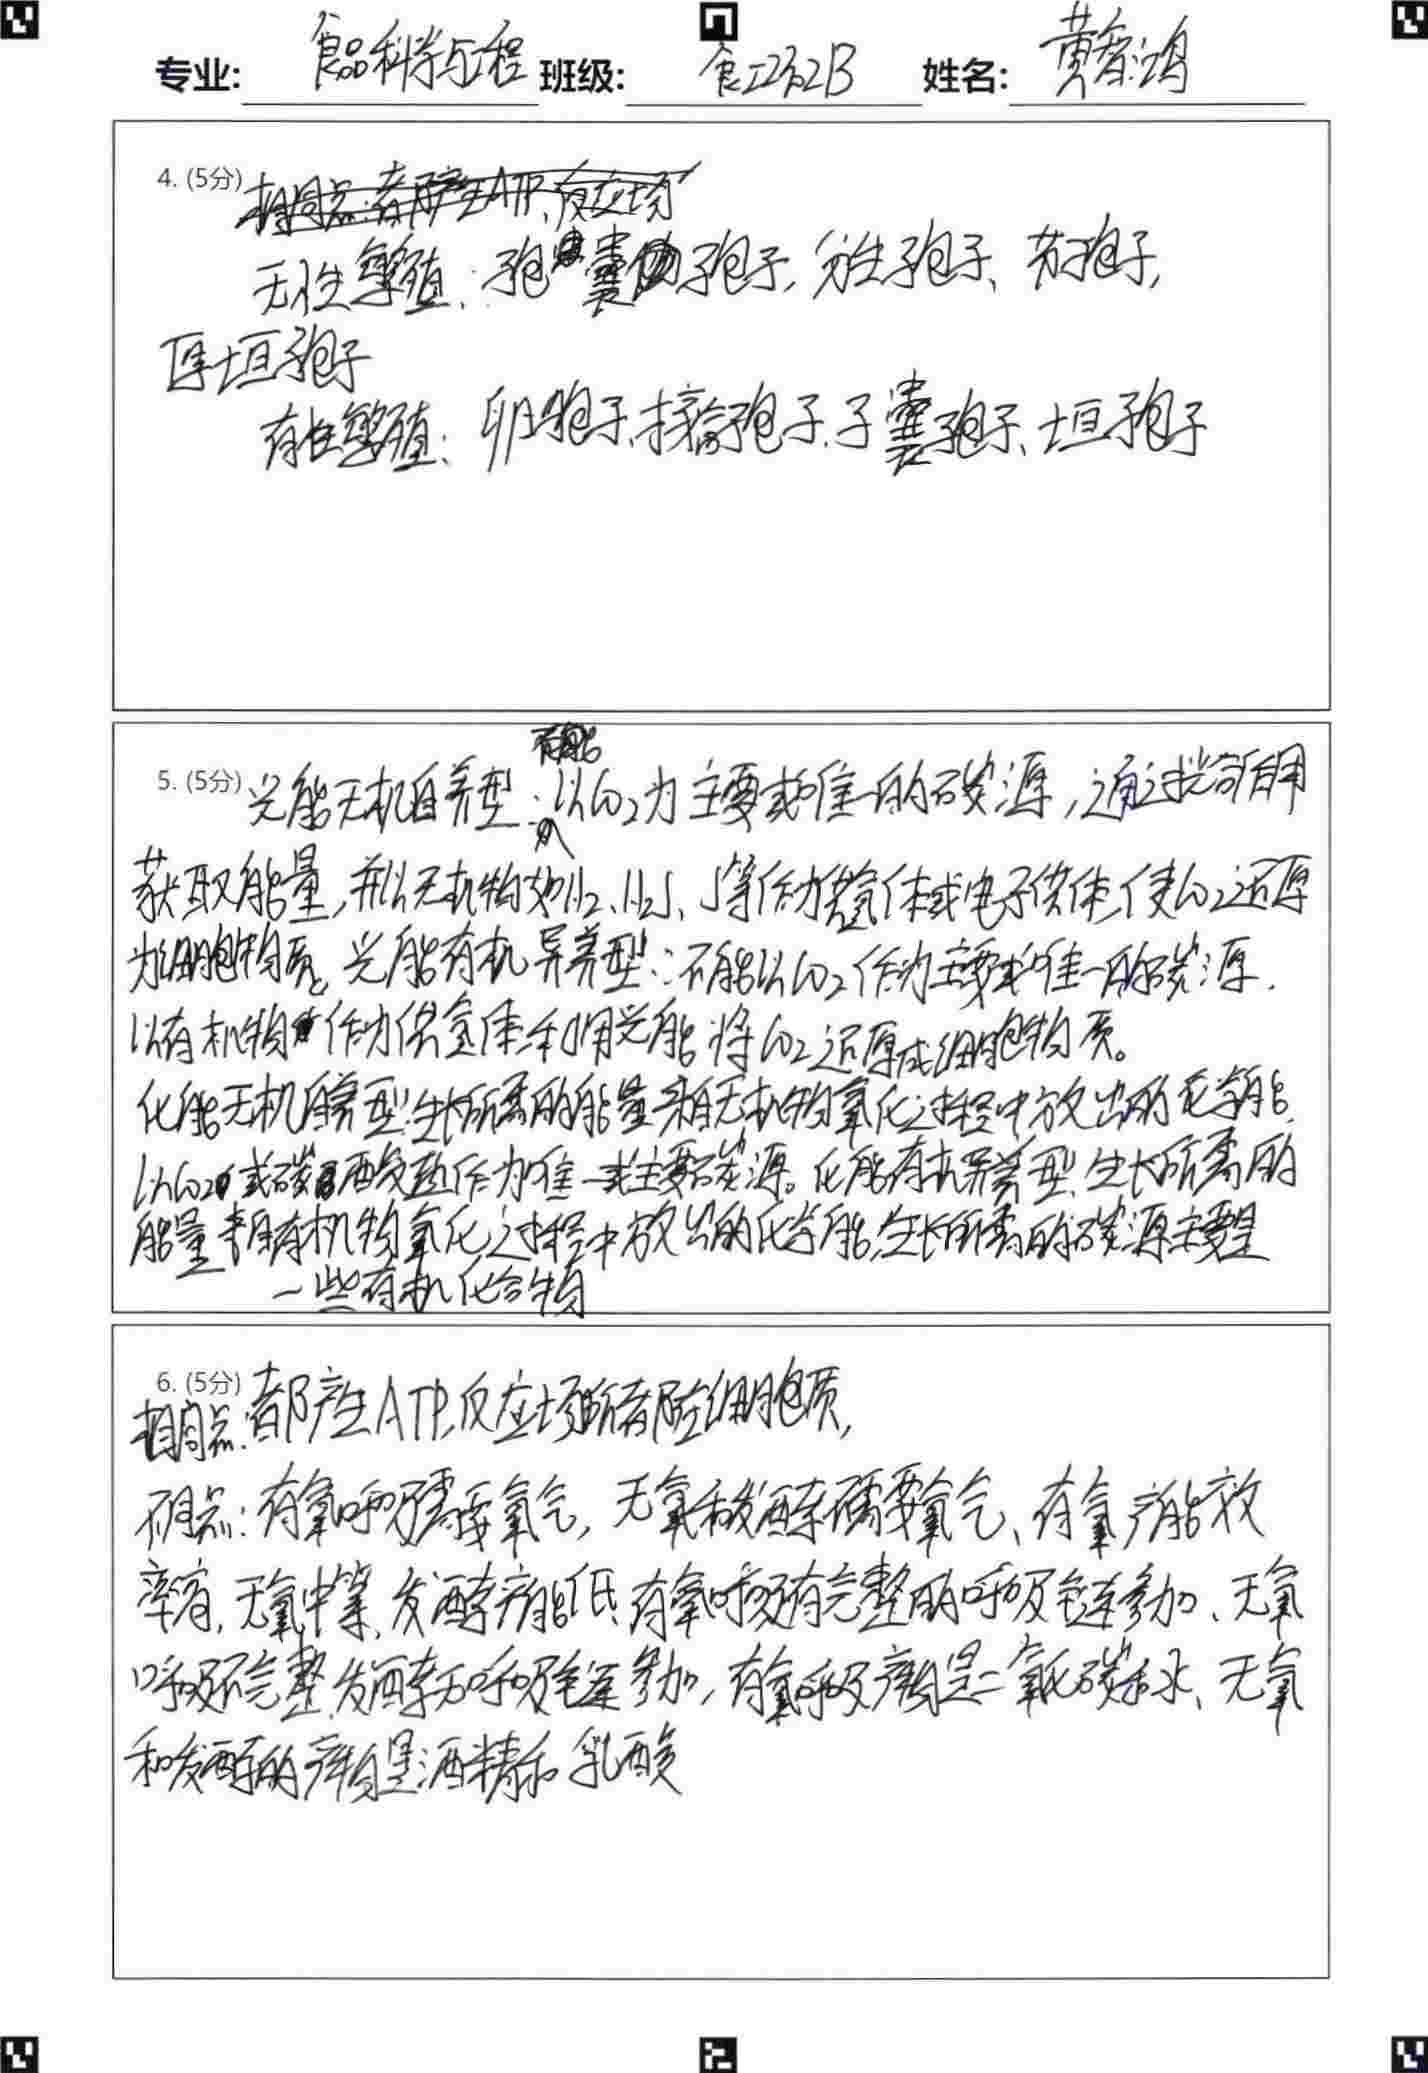 专业: 食品科学与工程 班级: 食工222B 姓名: 黄睿鸿
4. (5分) 相同点:都产生ATP、反应场
无性繁殖:孢囊孢子,分生孢子、芽孢子,
厚垣孢子
有性繁殖:卵孢子、接合孢子、子囊孢子、垣孢子
能
5. (5分) 光能无机自养型:以CO2为主要或唯一的碳源,通过光合作用
获取能量,并以无机物如H2、H2S、S等作为供氢体或电子供体,使CO2还原
为细胞物质。光能有机异养型:不能以CO2作为主要或唯一的碳源.
以有机物作为供氢体,利用光能将CO2还原成细胞物质。
化能无机自养型:生长所需的能量来自无机物氧化过程中放出的化学能,
以CO2或碳酸盐作为唯一或主要碳源。化能有机异养型:生长所需的
能量来自有机物氧化过程中放出的化学能,生长所需的碳源主要是
一些有机化合物
6. (5分) 都产生ATP,反应场所都在细胞质,
相同点:
不同点:有氧呼吸需要氧气,无氧和发酵不需要氧气、有氧产能效
率高,无氧中等,发酵产能低、有氧呼吸有完整的呼吸链参加、无氧
呼吸不完整,发酵无呼吸链参加,有氧呼吸产物是二氧化碳和水、无氧
和发酵的产物是酒精和乳酸